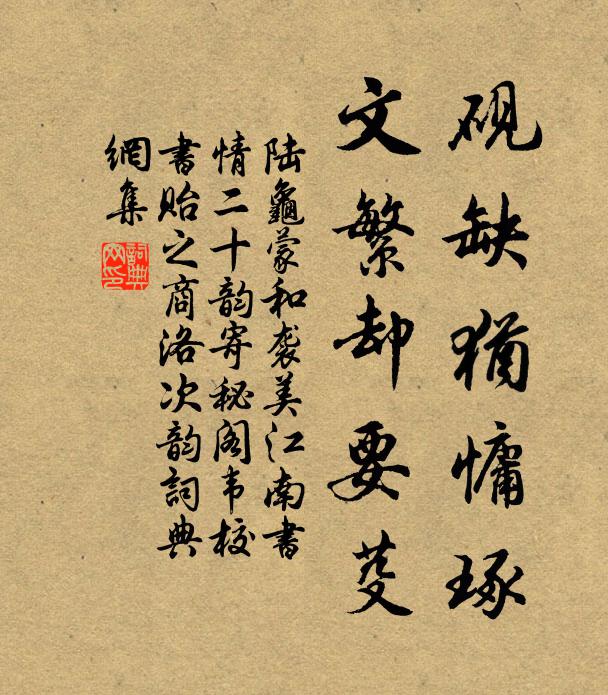 砚缺犹慵琢
文繁却要芟
陆龟蒙和袭美江南书
情二十韵寄秘阁韦校
书贻之商洛次韵词典
网集
词典网印